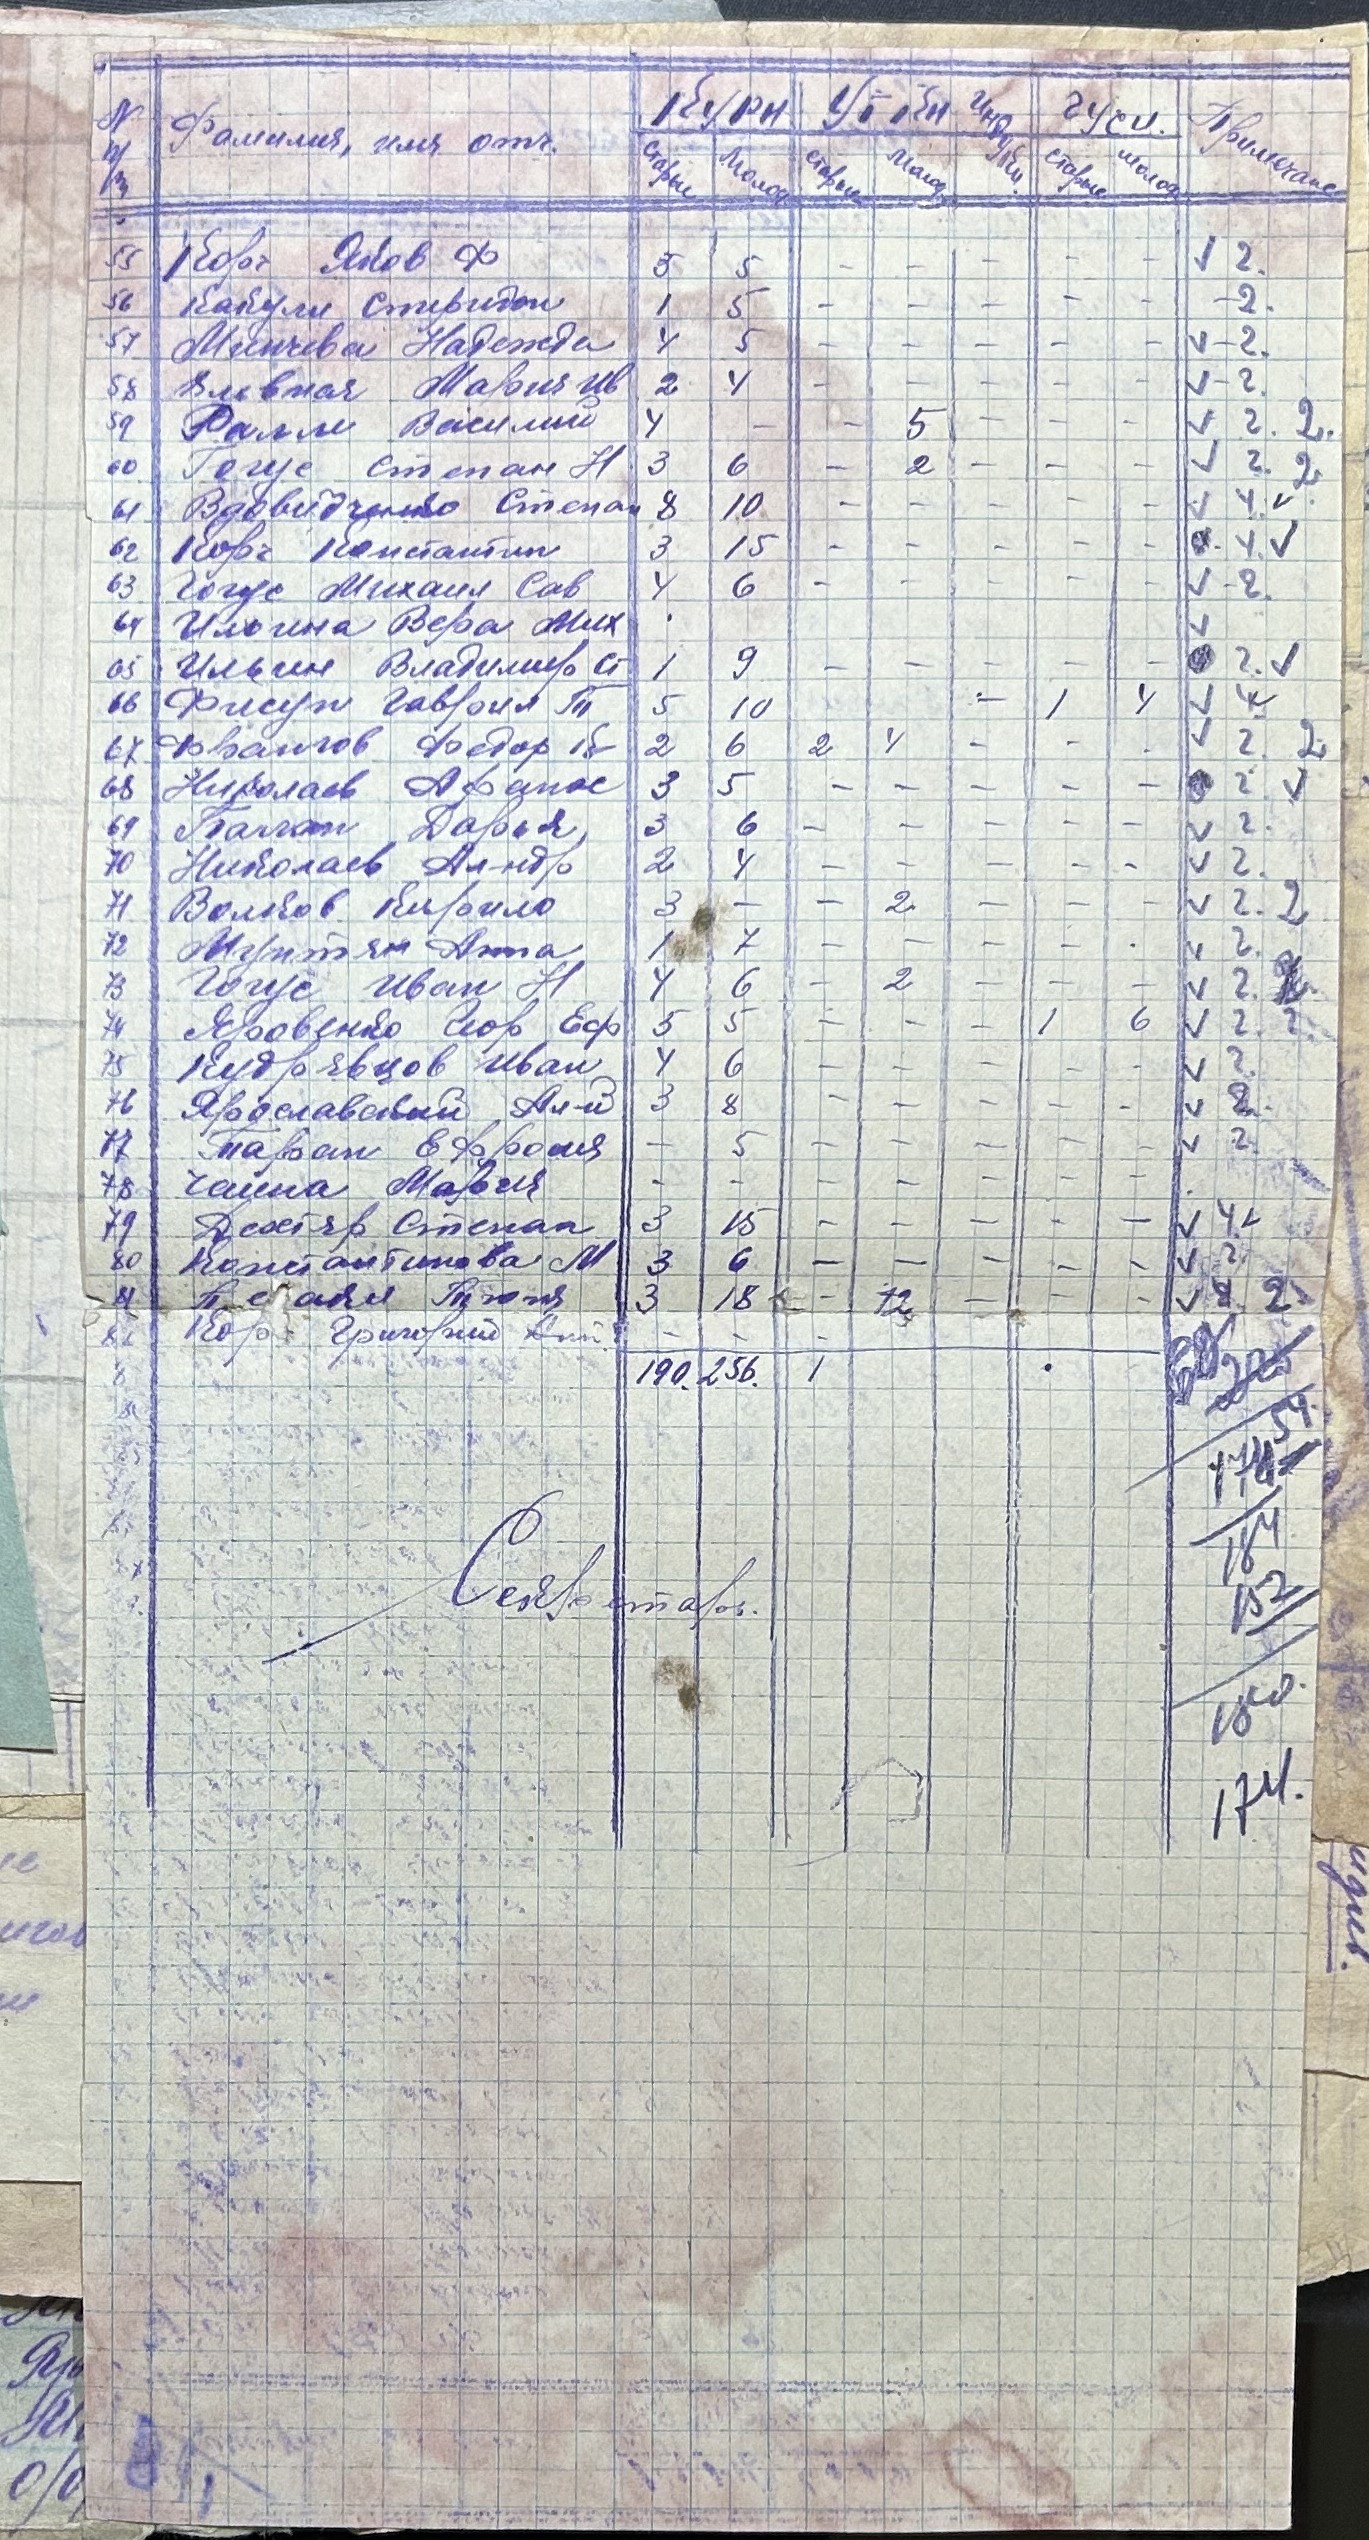 № п/п Фамилия, имя отч. Куры Утки Индуки Гуси. Примечание
старые молод старые молод старые молод
55 Корч Яков Ф 3 5 - - - - - √ 2.
56 Какули Спиридон 1 5 - - - - - - 2.
57 Минчева Надежда 4 5 - - - - - √ - 2.
58 Мария Ив 2 4 - - - - - √ - 2.
59 Ралли Василий 4 - - 5 - - - √ 2. 2.
60 Гогус Степан Н 3 6 - 2 - - - √ 2. 2.
61 Вдовидченко Степан 8 10 - - - - - √ 4. √
62 Корч Константин 3 15 - - - - - 4. √
63 Гогус Михаил Сав 4 6 - - - - - √ - 2.
64 Илюина Вера Мих . √
65 Ильин Владимир Ст 1 9 - - - - - 2. √
66 Фисун Гавриил Т 5 10 - 1 4 √ 4
67 Федор К 2 6 2 4 - - . √ 2. 2.
68 Николаев Афанас 3 5 - - - - - 2 √
69 Дарья, 3 6 - - - - - √ 2.
70 Николаев Ал-ндр 2 4 - - - - - √ 2.
71 Волков Кирило 3 - - 2 - - - √ 2. 2
72 Мунтян Анна 1 7 - - - - . √ 2.
73 Гогус Иван Н 4 6 - 2 - - - √ 2.
74 Яровенко Еф 5 5 - - - 1 6 √ 2. 2.
75 Кудрявцов Иван 4 6 - - - - - √ 2.
76 Ярославский Ал-й 3 8 - - - - - √ 2.
77 Таран Ефросия - 5 - - - - - √ 2.
78 Чайна Мария - - - - - - - .
79 Дехтяр Степан 3 15 - - - - - √ 4. √
80 Константинова М 3 6 - - - - - √ 2.
81 3 18 - 12 - - - √ 2.
82 Корч Григорий - - -
190. 256. 1 .
54.
174
184
Секретарь.
152
180.
174.